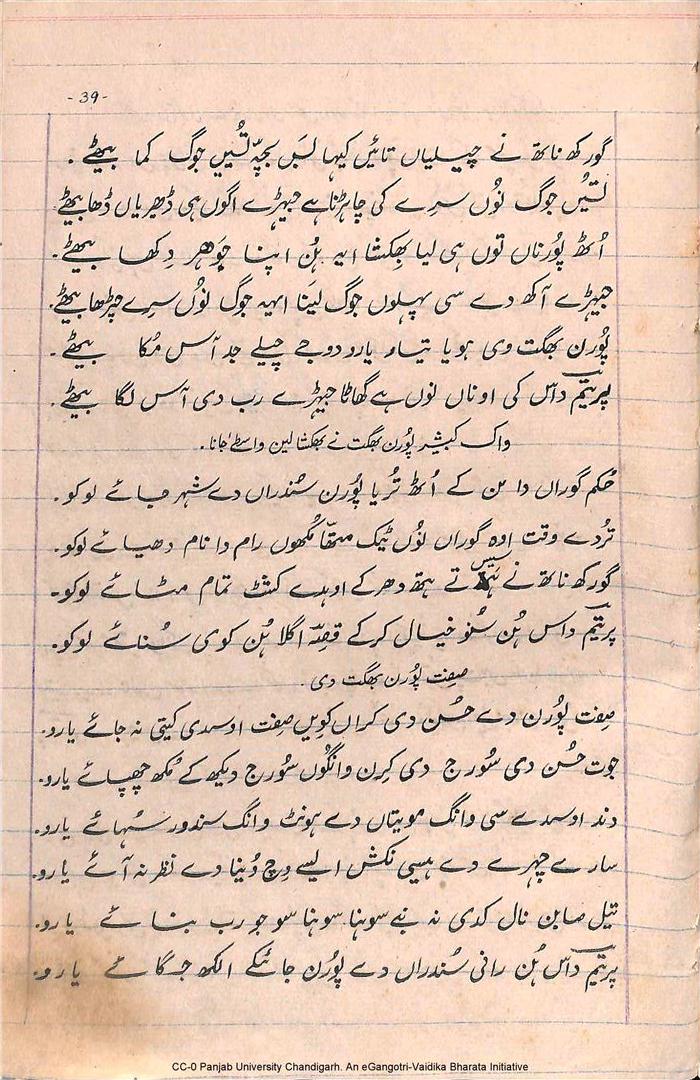 -39-
گورکھ ناتھ نے چیلیاں تائیں کیہا بس بچّہ تُسیں جوگ کما بیٹھے .
تسیُں جوگ نوُں سرے کی چاہڑنا ہے جیہڑے اگوں ہی ڈھیریاں ڈھا بیٹھے.
اُٹھ پوُرناں توں ہی لیا بھِکشا ایہ ہُن اپنا جَوھر دِکھا بیٹھے.
جیہڑے آکھ دے سی پہلوں جوگ لینَا ایہہ جوگ نوُں سرے چڑھا بیٹھے.
پوُرن بھگت وی ہویا تیاء یارو دوجے چیلے جد آس مُکا بیٹھے .
پریتم داس کی اوناں نوں ہے گھاٹا جیہڑے رب دی آس لگا بیٹھے .
واک کبیشر پوُرن بھگت نے بھِکشا لین واسطے جانا .
حُکم گوراں دا من کے اُٹھ تُریا پوُرن سُندراں دے شہر جائے لوکو .
تُردے وقت اوہ گوراں نوُں ٹیک متھّا مُکھوں رام دا نام دھیائے لوکو.
گورکھ ناتھ نے سیس تے ہتھ دھر کے اوہدے کشٹ تمام مٹائے لوکو.
پریتم داس ہُن سُنو خیال کرکے قصّہ اگلا ہُن کوی سُنائے لوکو.
صِفت پوُرن بھگت دی .
صِفت پوُرن دے حسُن دی کراں کویں صِفت اوسدی کیتی نہ جائے یارو.
جوت حسُن دی سُورج دی کِرن وانگوُں سُورج دیکھ کے مُکھ چھپائے یارو.
دند اوسدے سی وانگ موتیاں دے ہونٹ وانگ سندور سُہائے یارو.
سارے چہرے دے ہیسی نکش ایسے وِچ دُنیا دے نظر نہ آئے یارو.
تیل صابن نال کدی نہ بنے سوہنا سوہنا سو جو رب بنائے یارو.
پریتم داس ہُن رانی سُندراں دے پوُرن جائکے الکھ جگائے یارو.
CC-0 Panjab University Chandigarh. An eGangotri-Vaidika Bharata Initiative